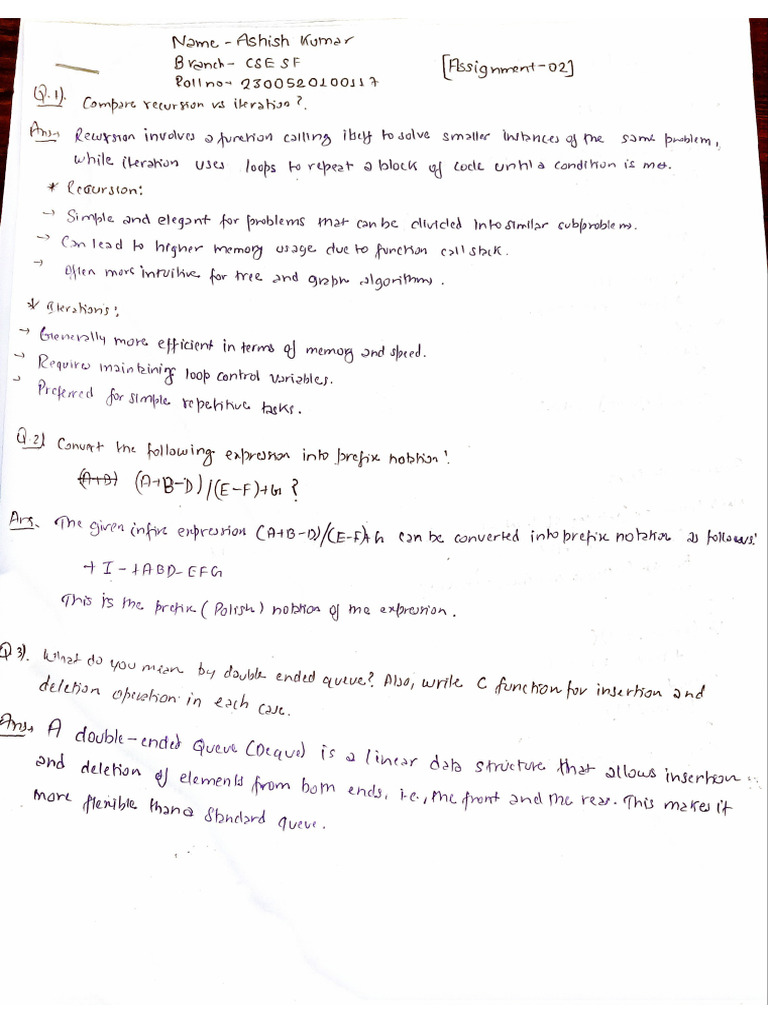 Name - Ashish Kumar
Branch - CSE SF
[Assignment-02]
Roll no - 2300520100117
Q.1). Compare recursion vs iteration?.
Ans→ Recursion involves a function calling itself to solve smaller instances of the same problem,
while iteration uses loops to repeat a block of code until a condition is met.
* Recursion:
→ Simple and elegant for problems that can be divided into similar subproblems.
→ Can lead to higher memory usage due to function call stack.
→ Often more intuitive for tree and graph algorithms.
* Iterations:
→ Generally more efficient in terms of memory and speed.
→ Requires maintaining loop control variables.
→ Preferred for simple repetitive tasks.
Q.2) Convert the following expression into prefix notation:
(A+B) (A+B-D)/(E-F)+G ?
Ans. The given infix expression (A+B-D)/(E-F)+G can be converted into prefix notation as follows:
+ I - + ABD - EFG
This is the prefix (Polish) notation of the expression.
Q 3). What do you mean by double ended queue? Also, write C function for insertion and
deletion operation in each case.
Ans→ A double-ended Queue (Deque) is a linear data structure that allows insertion
and deletion of elements from both ends, i.e., the front and the rear. This makes it
more flexible than a standard queue.